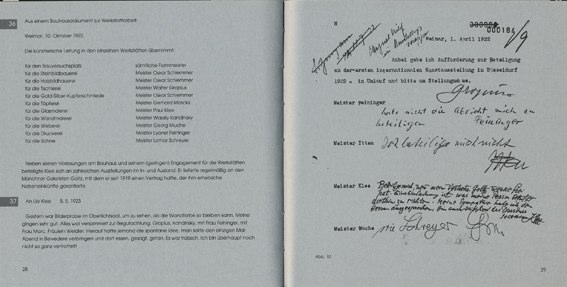 36
Aus einem Bauhausdokument zur Werkstattarbeit
Weimar, 10. Oktober 1922
Die künstlerische Leitung in den einzelnen Werkstätten übernimmt:
für den Bauversuchsplatz sämtliche Formmeister
für die Steinbildhauerei Meister Oscar Schlemmer
für die Holzbildhauerei Meister Oscar Schlemmer
für die Tischlerei Meister Walter Gropius
für die Gold-Silber-Kupferschmiede Meister Oscar Schlemmer
für die Töpferei Meister Gerhard Marcks
für die Glasmalerei Meister Paul Klee
für die Wandmalerei Meister Wassily Kandinsky
für die Weberei Meister Georg Muche
für die Druckerei Meister Lyonel Feininger
für die Bühne Meister Lothar Schreyer
Neben seinen Vorlesungen am Bauhaus und seinem (geringen) Engagement für die Werkstätten,
beteiligte Klee sich an zahlreichen Ausstellungen im In- und Ausland. Er lieferte regelmäßig an den
Münchner Galeristen Goltz, mit dem er seit 1919 einen Vertrag hatte, der ihm erhebliche
Nebeneinkünfte garantierte.
37
An Lily Klee 5. 5. 1923
Gestern war Bilderprobe im Oberlichtsaal, um zu sehen, ob die Wandfarbe so bleiben kann. Meine
gingen sehr gut. Alles war versammelt zur Begutachtung: Gropius, Kandinsky, mit Frau, Feininger, mit
Frau, Marc. Fräulein Weidler. Hierauf hatte jemand die spontane Idee, man solle den einzigen Mai-
Abend in Belvedere verbringen und dort essen, gesagt, getan. Es war hübsch. Ich bin überhaupt noch
nicht so ganz vertrocknet!
28
H
000184
/9
Weimar, 1. April 1922
Anbei gebe ich Aufforderung zur Beteiligung
an der ersten Internationalen Kunstausstellung in Düsseldorf
1922 in Umlauf und bitte um Stellungnahme.
Gropius
Meister Feininger
habe nicht die Absicht mich zu
beteiligen Feininger
Meister Itten beteilige mich nicht
Itten
Meister Klee
Meister Muche wie Schreyer
Abb. 10
29